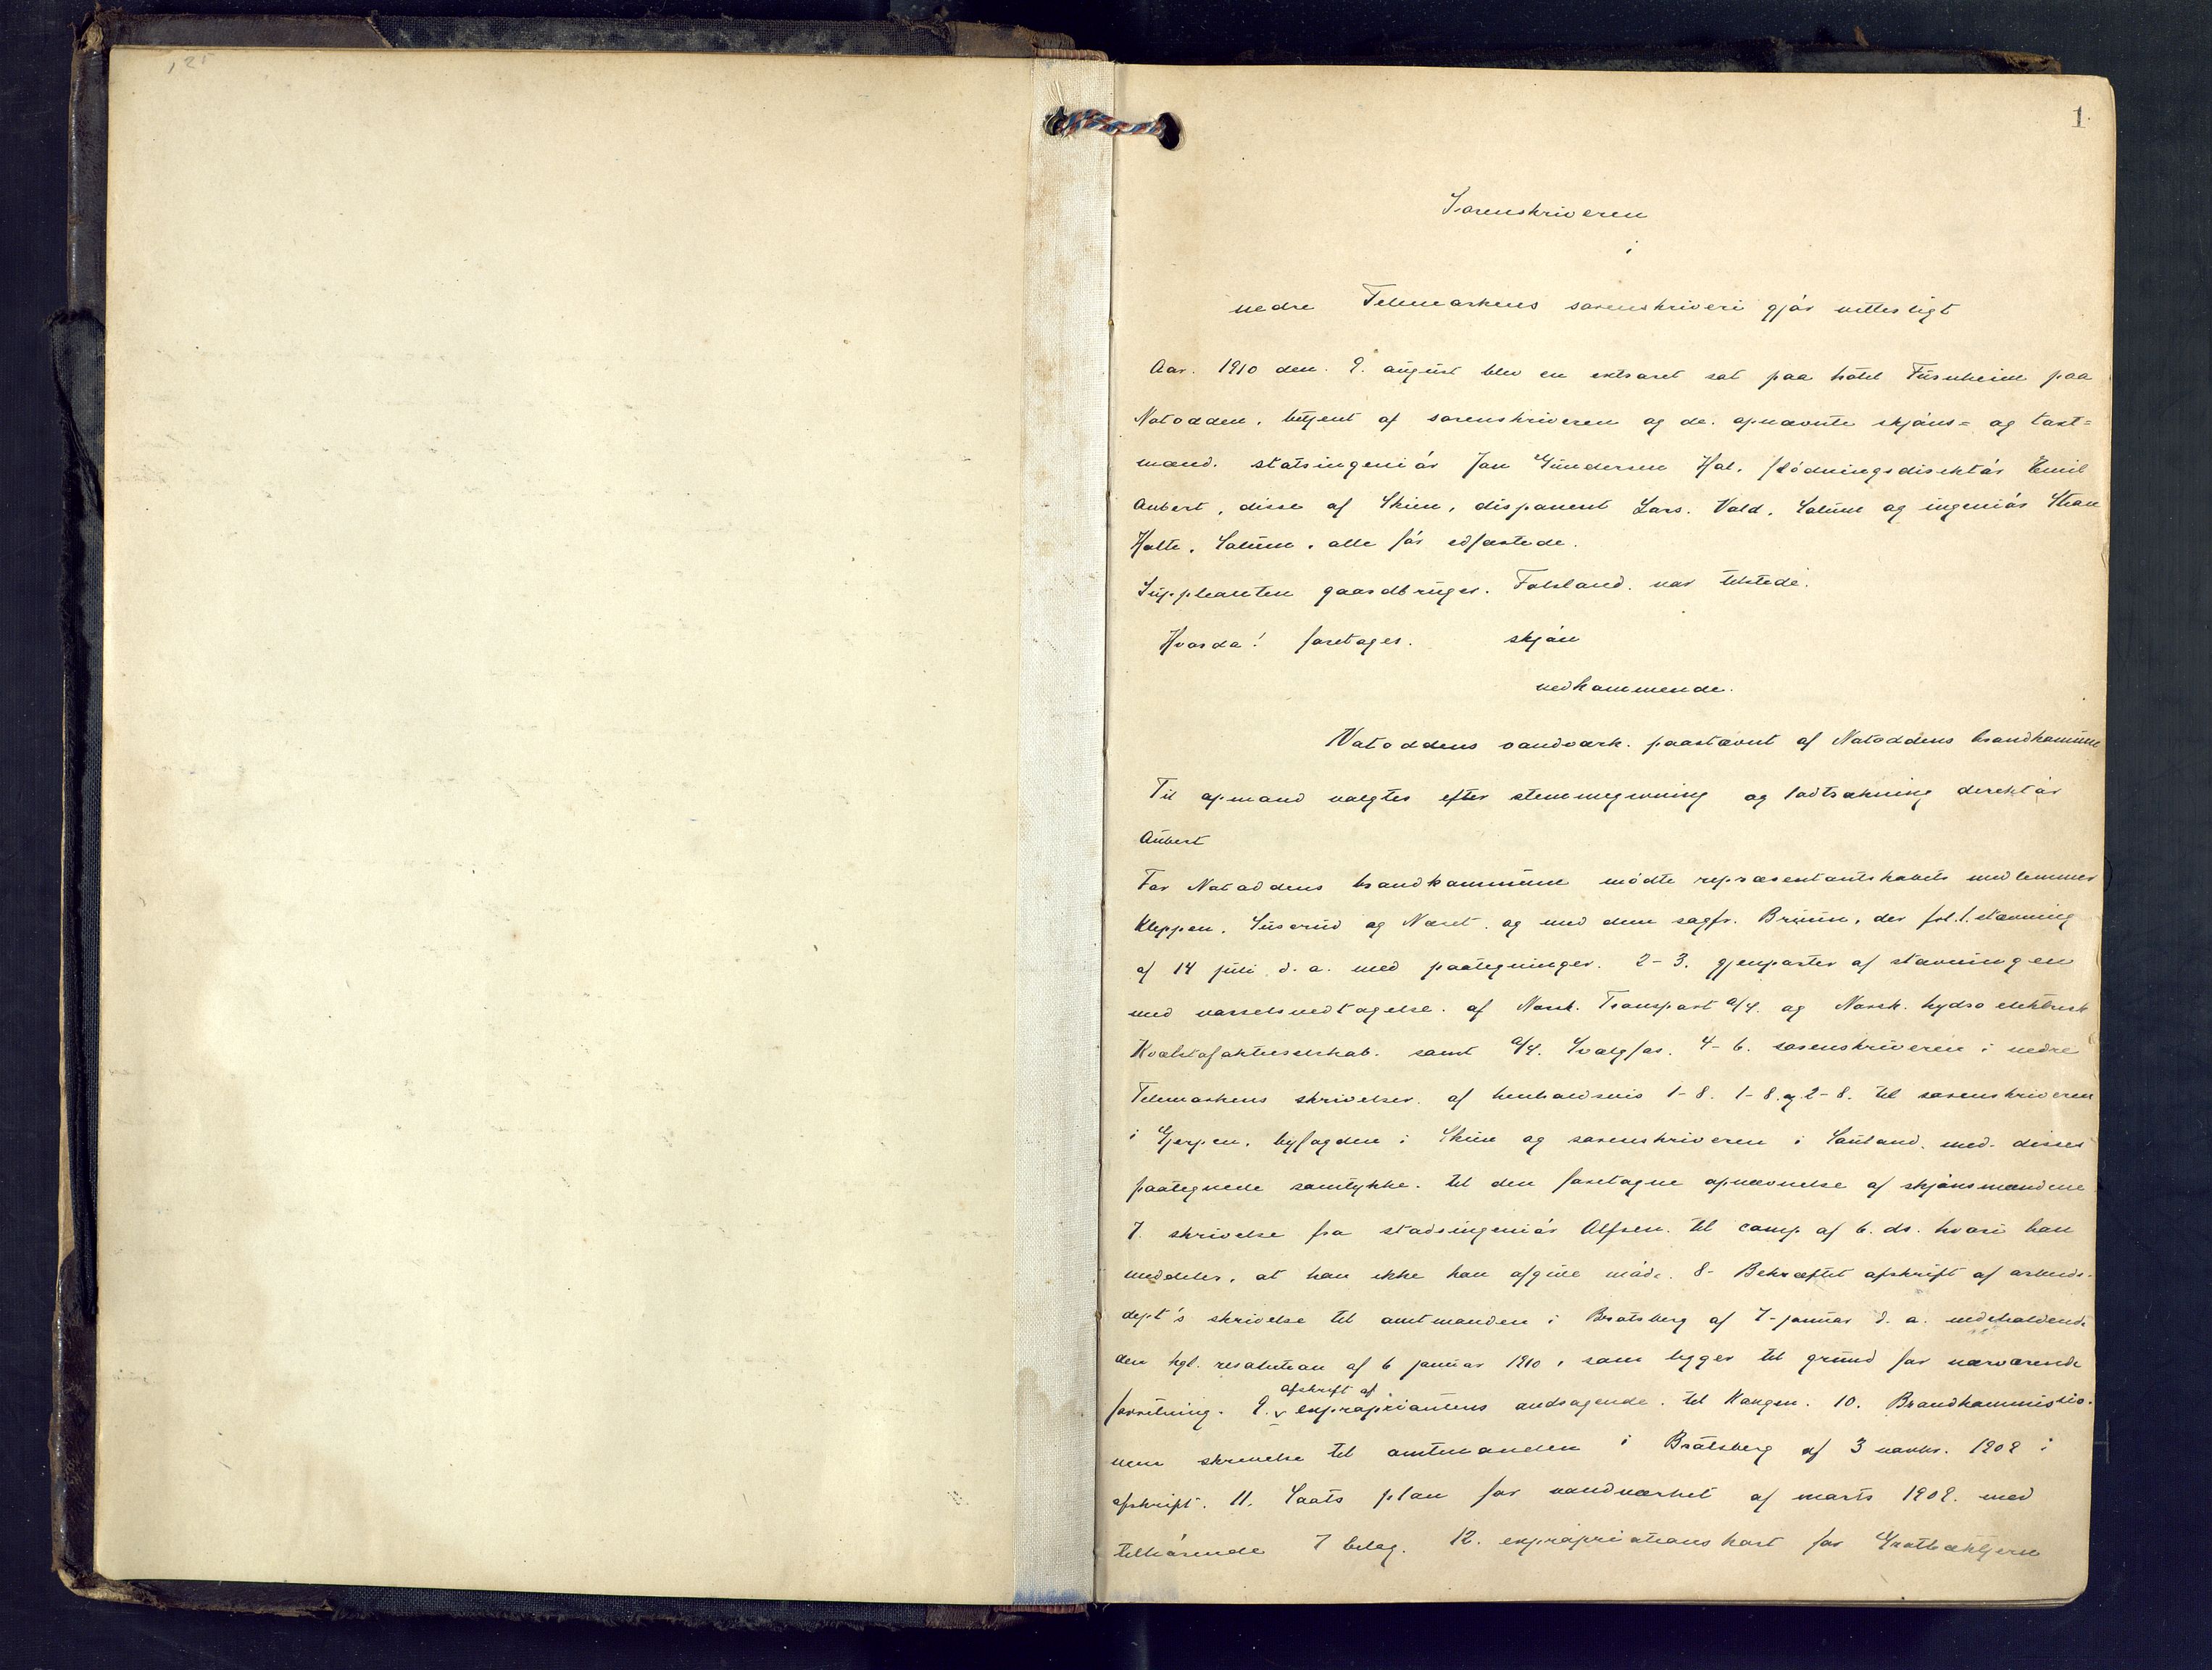 125
1
Sorenskriveren
i
nedre Telemarkens sorenskriveri gjør vitterligt
Aar. 1910 den. 9. august blev en extraret sat paa hotel Furuheim paa
Notodden, betjent af sorenskriveren og de. opnævnte skjøns= og takst=
mænd. statsingeniør Jon Gundersen Hol, flødningsdirektør Emil
Aubert, disse af Skien, disponent Lars. Vald. Solum og ingeniør
Holte, Solum, alle før edfæstede.
Suppleanten gaardbruger. Folsland. var tilstede.
Hvorda! foretages. skjøn
vedkommende.
Notoddens vandværk. paastævnt af Notoddens brandkommune
Til opmand valgtes efter stemmegivning og lodtrækning direktør
Aubert
For Notoddens brandkommune mødte repræsentantskabets medlemmer
Kleppen, Suserud og Næset. og med dem sagfr. Bruun, der frl. 1. stævning
af 14 juli d. a. med paategninger. 2-3. gjenparter af stævningen
med varselsvedtagelse. af Norsk. Transport A/S. og Norsk. hydro elektrisk
Kvælstofaktieselskab. samt A/S. Svælgfos. 4-6. sorenskriveren i nedre
Telemarkens skrivelser. af henholdsvis 1-8. 1-8. og 2-8. til sorenskriveren
i Gjerpen, byfogden i Skien og sorenskriveren i Sauland, med. disses
paategnede samtykke. til den foretagne opnævnelse af skjønsmændene
7. skrivelse fra stadsingeniør Alfsen. til comp. af 6. ds. hvori han
meddeles, at han ikke kan afgive møde. 8- Bekræftet afskrift af arbeids-
dept's skrivelse til amtmanden i Bratsberg af 7-januar d. a. indeholdende
den kgl. resolution af 6 januar 1910, som ligger til grund for nærværende
forretning. 9. afskrift af expropriantens andragende. til Kongen. 10. Brandkommissio-
nens skrivelse til amtmanden i Bratsberg af 3 novbr. 1909 i
afskrift. 11. Saats plan for vandværket af marts 1909. med
tilhørende 7 bilag. 12. expropriationskart for Grotbæktjern